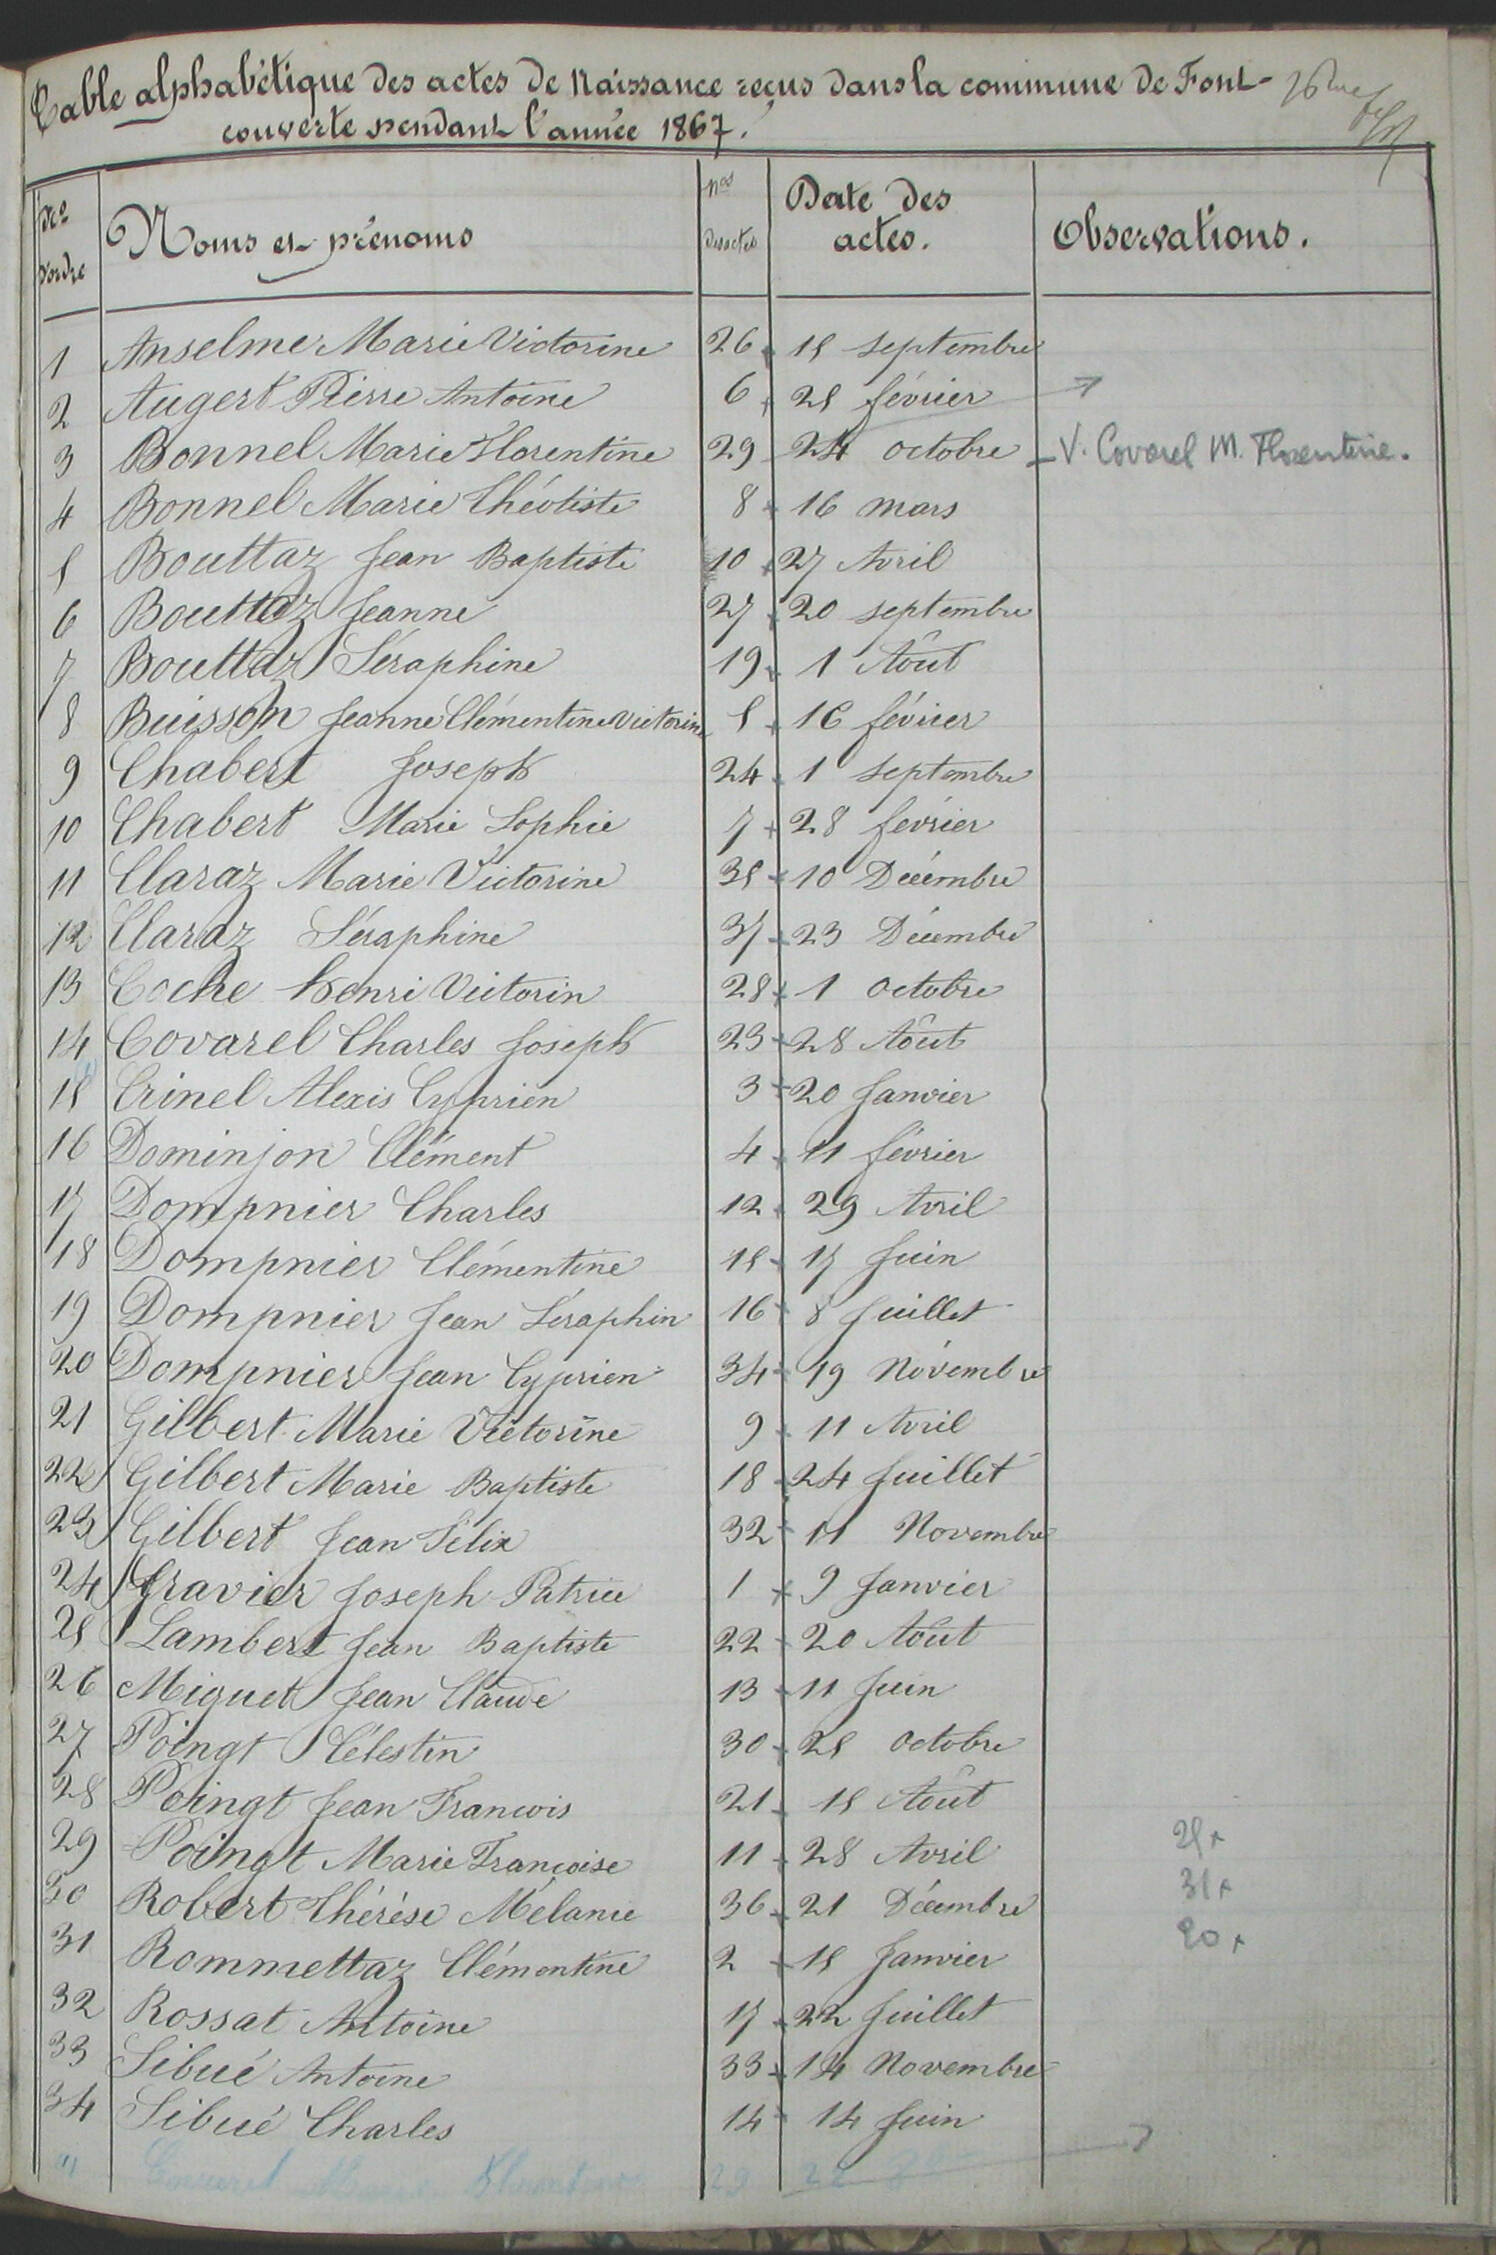 Table alphabétique des actes de Naissance reçus dans la commune de Font-
couverte pendant l'année 1867.
Nos d'ordre Noms et prénoms nos des actes Date des actes. Observations.
1 Anselme Marie Victorine 26 15 septembre
2 Augert Pierre Antoine 6 25 février
3 Bonnel Marie Florentine 29 24 octobre V. Covarel M. Florentine.
4 Bonnel Marie Théotiste 8 16 mars
5 Bouttaz Jean Baptiste 10 27 Avril
6 Bouttaz Jeanne 27 20 septembre
7 Bouttaz Séraphine 19 1 Août
8 Buisson Jeanne Clémentine Victorine 5 16 février
9 Chabert Joseph 24 1 septembre
10 Chabert Marie Sophie 7 28 février
11 Claraz Marie Victorine 35 10 Décembre
12 Claraz Séraphine 37 23 Décembre
13 Coche henri Victorin 28 1 octobre
14 Covarel Charles Joseph 23 28 Août
15 Crinel Alexis Cyprien 3 20 Janvier
16 Dominjon Clément 4 11 février
17 Dompnier Charles 12 29 Avril
18 Dompnier Clémentine 15 17 Juin
19 Dompnier Jean Séraphin 16 8 Juillet
20 Dompnier Jean Cyprien 34 19 Novembre
21 Gilbert Marie Victorine 9 11 Avril
22 Gilbert Marie Baptiste 18 24 Juillet
23 Gilbert Jean Félix 32 11 Novembre
24 Gravier Joseph Patrice 1 9 Janvier
25 Lambert Jean Baptiste 22 20 Août
26 Miquet Jean Claude 13 11 Juin
27 Poingt Célestin 30 25 octobre
28 Poingt Jean François 21 15 Août
29 Poingt Marie Françoise 11 28 Avril 25 x
30 Robert Thérèse Mélanie 36 21 Décembre 31 x
31 Rommettaz Clémentine 2 15 Janvier 20 x
32 Rossat Antoine 17 22 Juillet
33 Sibué Antoine 33 14 Novembre
34 Sibué Charles 14 14 Juin
Covarel Marie Florentine 29